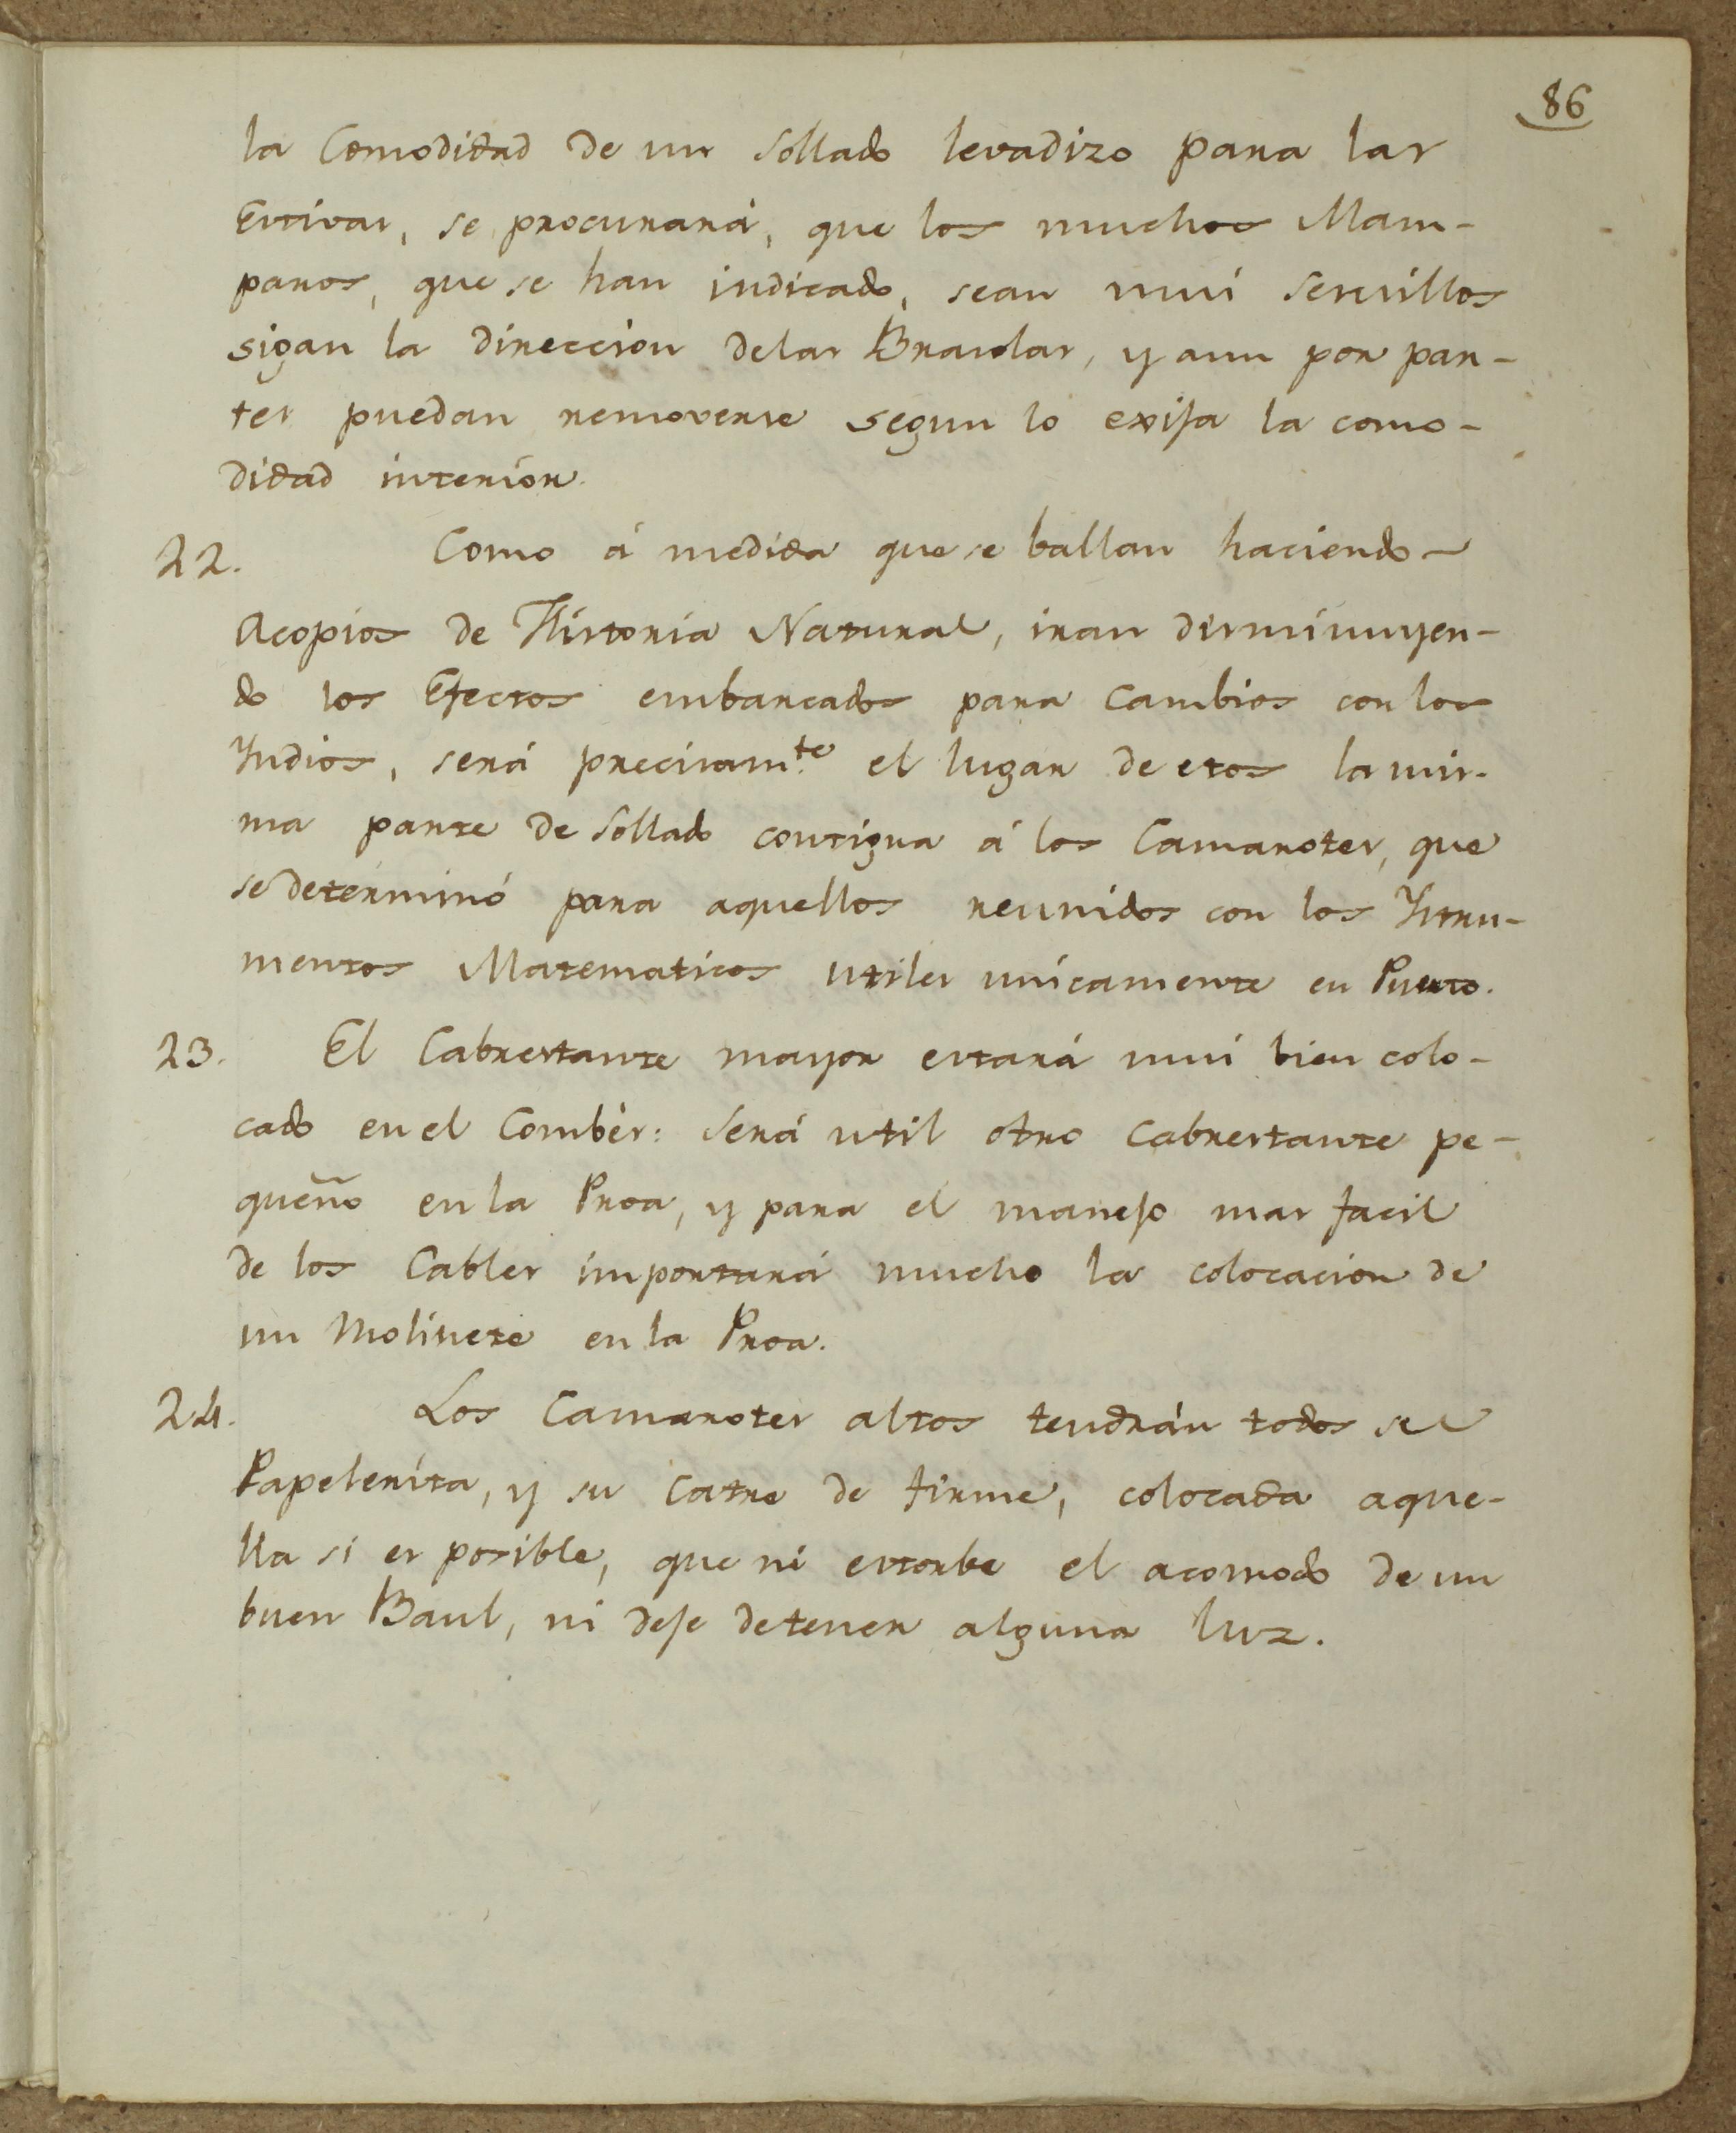 86
la Comodidad de un sollado levadizo para las
Estivas, se procurará, que los muchos Mam-
paros, que se han indicado, sean mui sencillos
sigan la direccion delas Brazolas, y aun por par-
tes puedan removerse segun lo exija la como-
didad interior.
22. Como á medida que se ballan haciendo
Acopios de Historia Natural, iran disminuyen-
do los Efectos embarcados para Cambios con los
Yndios, será precisam.te el lugar de etos la mis-
ma parte de sollado contigua á los Camarotes, que
se determinó para aquellos reunidos con los Ystru-
mentos Matematicos utiles unicamente en Puerto.
23. El Cabrestante mayor estará mui bien colo-
cado en el Combés: Será util otro Cabrestante pe-
queño en la Proa, y para el manejo mas facil
de los Cables importará mucho la colocacion de
un Molinete en la Proa.
24. Los Camarotes altos tendrán todos se
Papelerita, y su Catre de firme, colocada aque-
lla si es posible, que ni estorbe el acomodo de un
buen Baul, ni deje detener alguna luz.